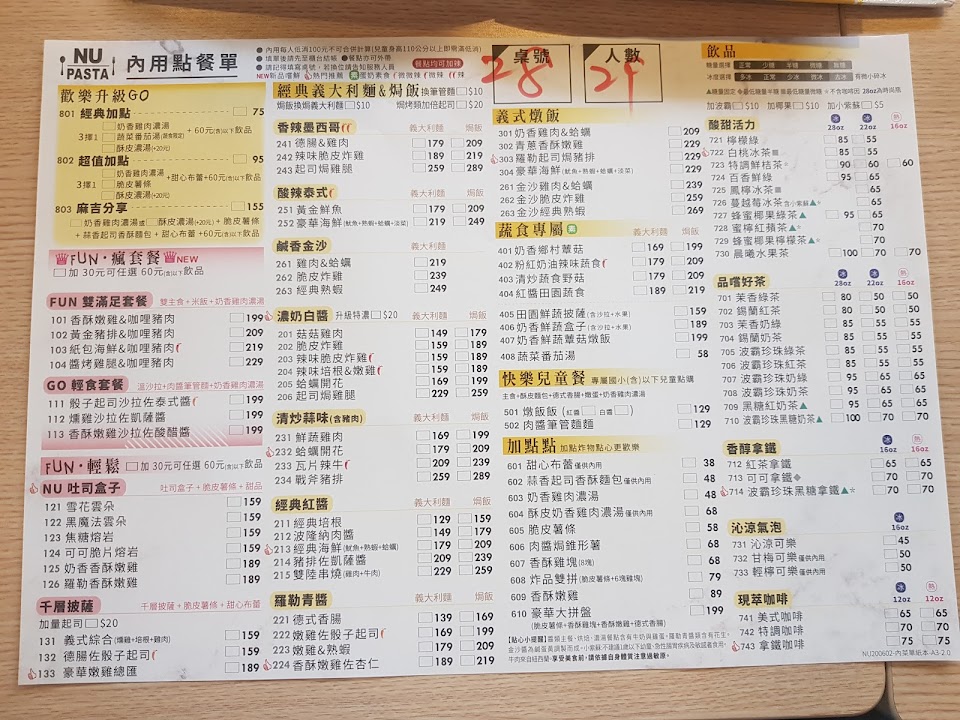 NU PASTA
內用點餐單
● 內用每人低消100元不可合併計算(兒童身高110公分以上即需滿低消)
● 填單後請先至櫃台結帳 ●餐點亦可外帶
● 請記得填寫桌號，若換位請告知服務人員
餐點均可加辣
NEW新品嚐鮮 熱門推薦 蛋奶素食 微微辣 微辣 辣
桌號
28
人數
29
歡樂升級GO
801 經典加點 75
3擇1
奶香雞肉濃湯
蔬菜番茄湯
酥皮濃湯(+20元)
+60元(含)以下飲品
802 超值加點 95
3擇1
奶香雞肉濃湯
脆皮薯條
酥皮濃湯(+20元)
+甜心布蕾+60元(含)以下飲品
803 麻吉分享 155
奶香雞肉濃湯或 酥皮濃湯(+20元) + 脆皮薯條
+ 蒜香起司香酥麵包 + 甜心布蕾+60元(含)以下飲品
FUN・瘋套餐 NEW
加 30元可任選 60元(含)以下飲品
FUN 雙滿足套餐 雙主食+米飯+奶香雞肉濃湯
101 香酥嫩雞&咖哩豬肉 199
102 黃金豬排&咖哩豬肉 209
103 紙包海鮮&咖哩豬肉 199
104 醬烤雞腿&咖哩豬肉 229
GO 輕食套餐 溫沙拉+肉醬筆管麵+奶香雞肉濃湯
111 骰子起司沙拉佐泰式醬 199
112 燻雞沙拉佐凱薩醬 199
113 香酥嫩雞沙拉佐酸醋醬 199
FUN・輕鬆
加 30元可任選 60元(含)以下飲品
NU 吐司盒子 吐司盒子+脆皮薯條+甜品
121 雪花雲朵 159
122 黑魔法雲朵 159
123 焦糖熔岩 159
124 可可脆片熔岩 159
125 奶香香酥嫩雞 189
126 羅勒香酥嫩雞 189
千層披薩 千層披薩+脆皮薯條+甜心布蕾
加量起司 $20
131 義式綜合(燻雞+培根+雞肉) 159
132 德腸佐骰子起司 159
133 豪華嫩雞總匯 189
經典義大利麵&焗飯
換筆管麵 $10
焗飯換焗義大利麵 $10 焗烤類加倍起司 $20
香辣墨西哥 義大利麵 焗飯
241 德腸&雞肉 179 209
242 辣味脆皮炸雞 189 219
243 起司雞腿 259 289
酸辣泰式 義大利麵 焗飯
251 黃金鮮魚 179 209
252 豪華海鮮(魷魚+熟蝦+蛤蠣+淡菜) 219 249
鹹香金沙 義大利麵
261 雞肉&蛤蠣 219
262 脆皮炸雞 239
263 經典熟蝦 249
濃奶白醬 升級特濃 $20 義大利麵 焗飯
201 菇菇雞肉 149 179
202 脆皮炸雞 159 189
203 辣味脆皮炸雞 159 189
204 辣味培根&嫩雞 159 189
205 蛤蠣開花 169 199
206 起司雞腿 229 259
清炒蒜味(含豬肉) 義大利麵 焗飯
231 鮮蔬雞肉 169 199
232 蛤蠣開花 179 209
233 瓦片辣牛 209 239
234 戰斧豬排 259 289
經典紅醬 義大利麵 焗飯
211 經典培根 129 159
212 波隆納肉醬 149 179
213 經典海鮮(魷魚+熟蝦+蛤蠣) 179 209
214 豬排佐凱薩醬 209 239
215 雙陸串燒(雞肉+牛肉) 229 259
羅勒青醬 義大利麵 焗飯
221 德式香腸 139 169
222 嫩雞佐骰子起司 169 199
223 嫩雞&熟蝦 179 209
224 香酥嫩雞佐杏仁 189 219
義式燉飯
301 奶香雞肉&蛤蠣 209
302 青蔥香酥嫩雞 229
303 羅勒起司焗豬排 229
304 豪華海鮮(魷魚+熟蝦+蛤蠣+淡菜) 229
261 金沙雞肉&蛤蠣 239
262 金沙脆皮炸雞 259
263 金沙經典熟蝦 269
蔬食專屬 義大利麵 焗飯
401 奶香鄉村蕈菇 169 199
402 粉紅奶油辣味蔬食 169 199
403 清炒起司食野菇 179 209
404 紅醬田園蔬食 189 219
405 田園鮮蔬披薩(含沙拉+水果) 159
406 奶香鮮蔬盒子(含沙拉+水果) 189
407 奶香鮮蔬蕈菇燉飯 189
408 蔬菜番茄湯 58
快樂兒童餐 專屬國小(含)以下兒童點購
主食+酥皮麵包+德式香腸+嫩蛋+奶香雞肉濃湯
501 燉飯飯(紅醬 白醬 ) 129
502 肉醬筆管麵麵 129
加點點 加點炸物點心更歡樂
601 甜心布蕾僅供內用 38
602 蒜香起司香酥麵包僅供內用 48
603 奶香雞肉濃湯 48
604 酥皮奶香雞肉濃湯僅供內用 68
605 脆皮薯條 58
606 肉醬焗錐形薯 68
607 香酥雞塊(8塊) 68
608 炸品雙拼(脆皮薯條+6塊雞塊) 79
609 香酥嫩雞 89
610 豪華大拼盤 199
(脆皮薯條+香酥雞塊+香酥嫩雞+德式香腸)
飲品
甜量選擇 正常 少糖 半糖 微糖 無糖
冰度選擇 多冰 正常 少冰 微冰 去冰 有微小碎冰
加波霸 $10 加椰果 $10 加小紫蘇 $5
酸甜活力 冰 28oz 冰 22oz 熱 16oz
721 檸檬綠 85 55
722 白桃冰茶 85 55
723 特調鮮桔茶 90 60 60
724 百香鮮綠 85 55
725 鳳檸冰茶 65
726 蔓越莓冰茶 含小紫蘇 65
727 蜂蜜椰果綠茶 95 65
728 蜜檸紅蘋茶 70
729 蜂蜜椰果檸檬茶 70
730 晨曦水果茶 100 70 70
品嚐好茶 冰 28oz 冰 22oz 熱 16oz
701 茉香綠茶 80 50 50
702 錫蘭紅茶 80 50 50
703 茉香奶綠 85 55 55
704 錫蘭奶茶 85 55 55
705 波霸珍珠綠茶 85 55 55
706 波霸珍珠紅茶 85 55 55
707 波霸珍珠奶綠 95 65 65
708 波霸珍珠奶茶 95 65 65
709 黑糖紅奶茶 95 65 65
710 波霸珍珠黑糖奶茶 100 70 70
香醇拿鐵 冰 16oz 熱 16oz
712 紅茶拿鐵 65 65
713 可可拿鐵 70 70
714 波霸珍珠黑糖拿鐵 70 70
沁涼氣泡 冰 16oz
731 沁涼可樂 45
732 甘梅可樂 僅供內用 50
733 輕檸可樂 僅供內用 50
現萃咖啡 冰 12oz 熱 12oz
741 美式咖啡 65 65
742 特調咖啡 70 70
743 拿鐵咖啡 75 75
NU200602-內菜單紙本-A3-2.0